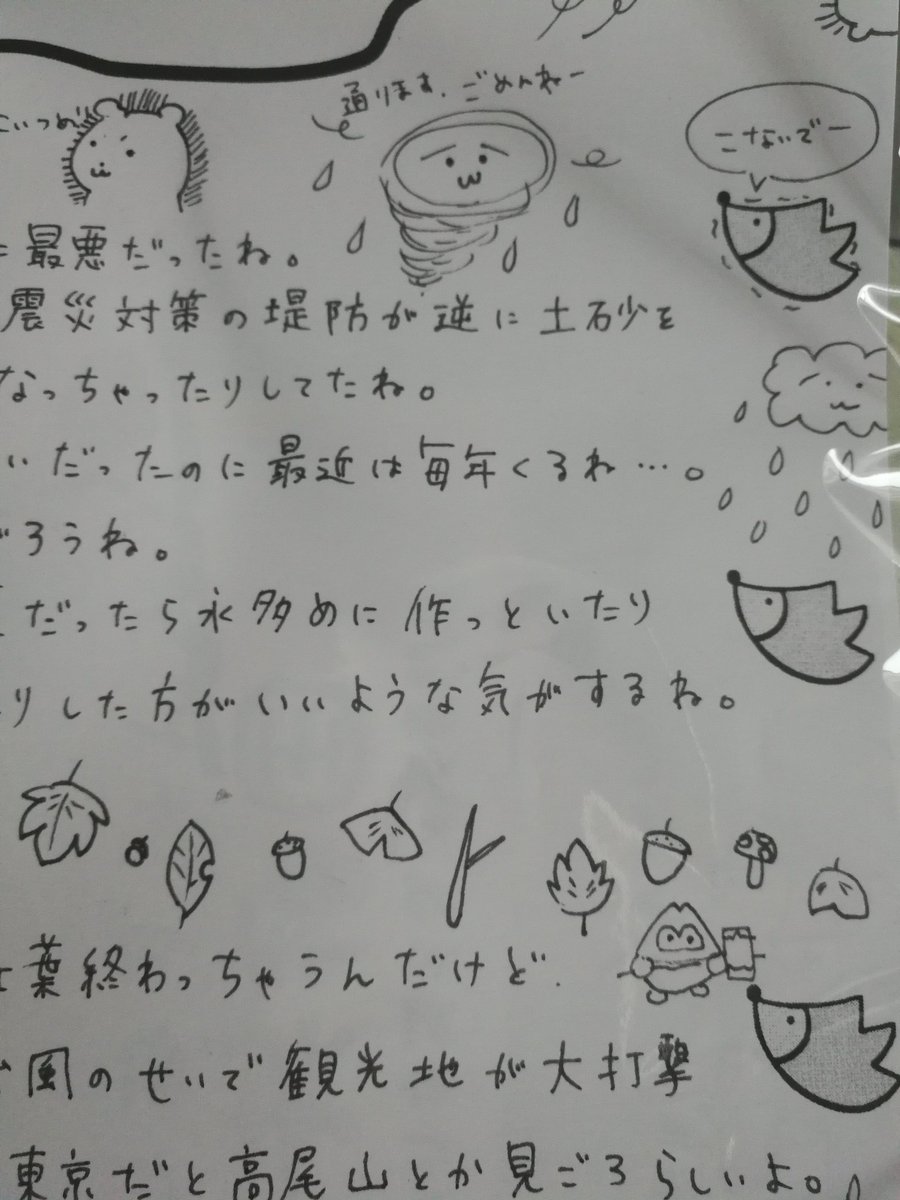 こいつめ
通ります、ごめんねー
こないでー
最悪だったね。
震災対策の堤防が逆に土石少を
なっちゃったりしてたね。
いだったのに最近は毎年くるね…。
ろうね。
だったら氷多めに作っといたり
りした方がいいような気がするね。
葉終わっちゃうんだけど
風のせいで観光地が大打撃
東京だと高尾山とか見ごろらしいよ。